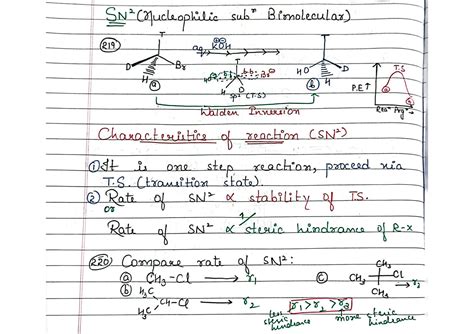 SN² (Nucleophilic subⁿ Bimolecular)
219
T T
aq. KOH
D Br HO D
H H
a b
sp² (T.S)
P.E↑ T.S
Rxⁿ Prgˢ →
Walden Inversion
Characteristics of reaction (SN²)
① It is one step reaction, proceed via
T.S. (transition state).
② Rate of SN² ∝ stability of T.S.
or
Rate of SN² ∝ 1/steric hindrance of R-X
220 Compare rate of SN²:
ⓐ CH₃-Cl → r₁
ⓑ H₃C CH-Cl → r₂
H₃C
ⓒ CH₃ CH₃ Cl → r₃
CH₃
r₁ > r₂ > r₃
less steric hindrance
more steric hindrance